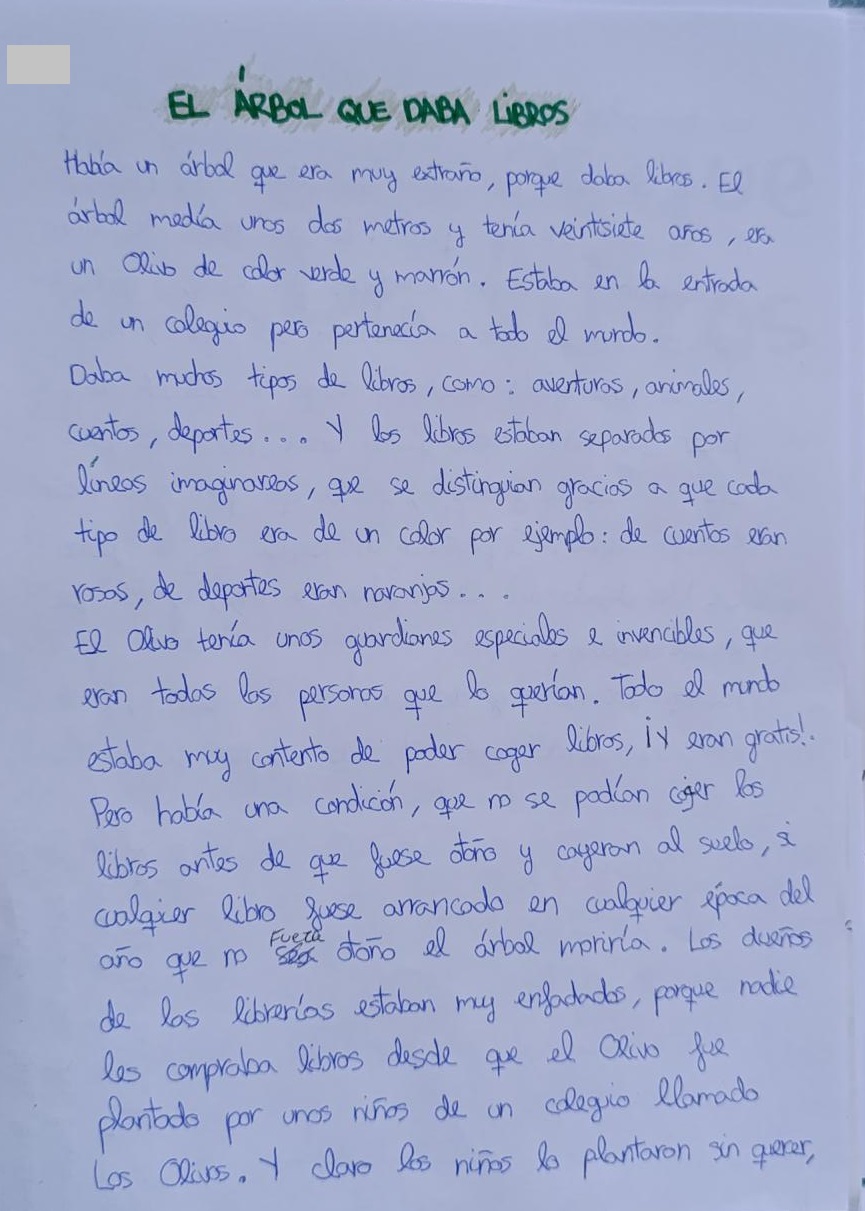 EL ÁRBOL QUE DABA LIBROS
Había un árbol que era muy extraño, porque daba libros. El
árbol medía unos dos metros y tenía veintisiete años, era
un Olivo de color verde y marrón. Estaba en la entrada
de un colegio pero pertenecía a todo el mundo.
Daba muchos tipos de libros, como: aventuras, animales,
cuentos, deportes.... Y los libros estaban separados por
líneas imaginareas, que se distinguian gracias a que cada
tipo de libro era de un color por ejemplo: de cuentos eran
rosas, de deportes eran naranjas...
El Olivo tenía unos guardianes especiales e invencibles, que
eran todas las personas que lo querían. Todo el mundo
estaba muy contento de poder coger libros, ¡Y eran gratis!.
Pero había una condición, que no se podían cojer los
libros antes de que fuese otoño y cayeran al suelo, si
cualquier libro fuese arrancado en cualquier época del
año que no fuera otoño el árbol moriría. Los dueños
de las librerías estaban muy enfadados, porque nadie
les compraba libros desde que el Olivo fue
plantado por unos niños de un colegio llamado
Los Olivos. Y claro los niños lo plantaron sin querer,